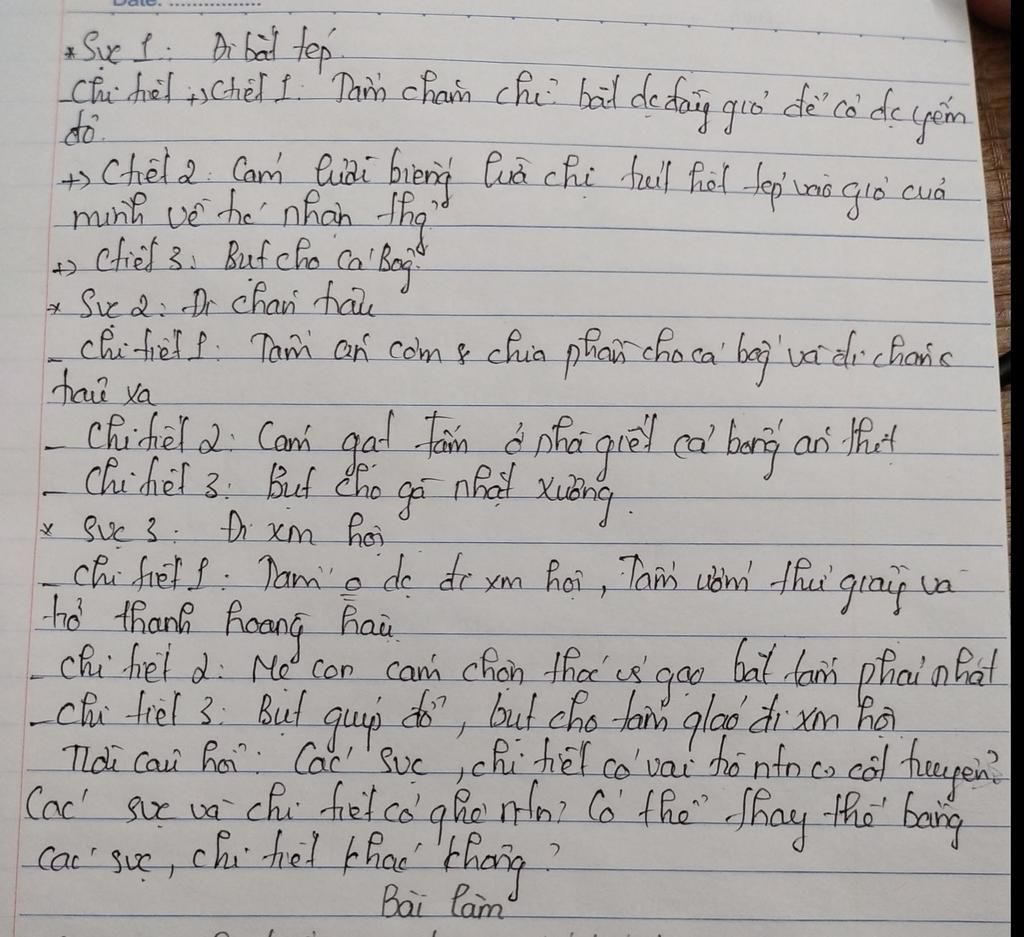 Date:
* Sực 1: Đi bắt tép
- Chi tiết +> Ctiết 1: Tấm chăm chỉ bắt đc đầy giỏ để có đc yếm
đỏ
+> Ctiết 2: Cám lười biếng lừa chị trút hết tép vào giỏ của
mình về trc nhận thg
+> Ctiết 3: Bụt cho cá Bống
* Sực 2: Đi chăn trâu
- Chi tiết 1: Tấm ăn cơm & chia phần cho cá bống và đi chăn
trâu xa
- Chi tiết 2: Cám gạt Tấm ở nhà giết cá bống ăn thịt
- Chi tiết 3: Bụt cho gà nhặt xương.
* Sực 3: Đi xm hội
- Chi tiết 1: Tấm đc đi xm hội, Tấm ướm thử giầy và
trở thành hoàng hậu
- Chi tiết 2: Mẹ con cám chộn thóc vs gạo bắt tấm phải nhặt
- Chi tiết 3: Bụt giúp đỡ, bụt cho tấm qláo đi xm hội
Trả lời câu hỏi: Các sực, chi tiết có vai trò ntn cốt truyện?
Các sực và chi tiết có ntn? Có thể thay thế bằng
các sực, chi tiết khác không?
Bài làm